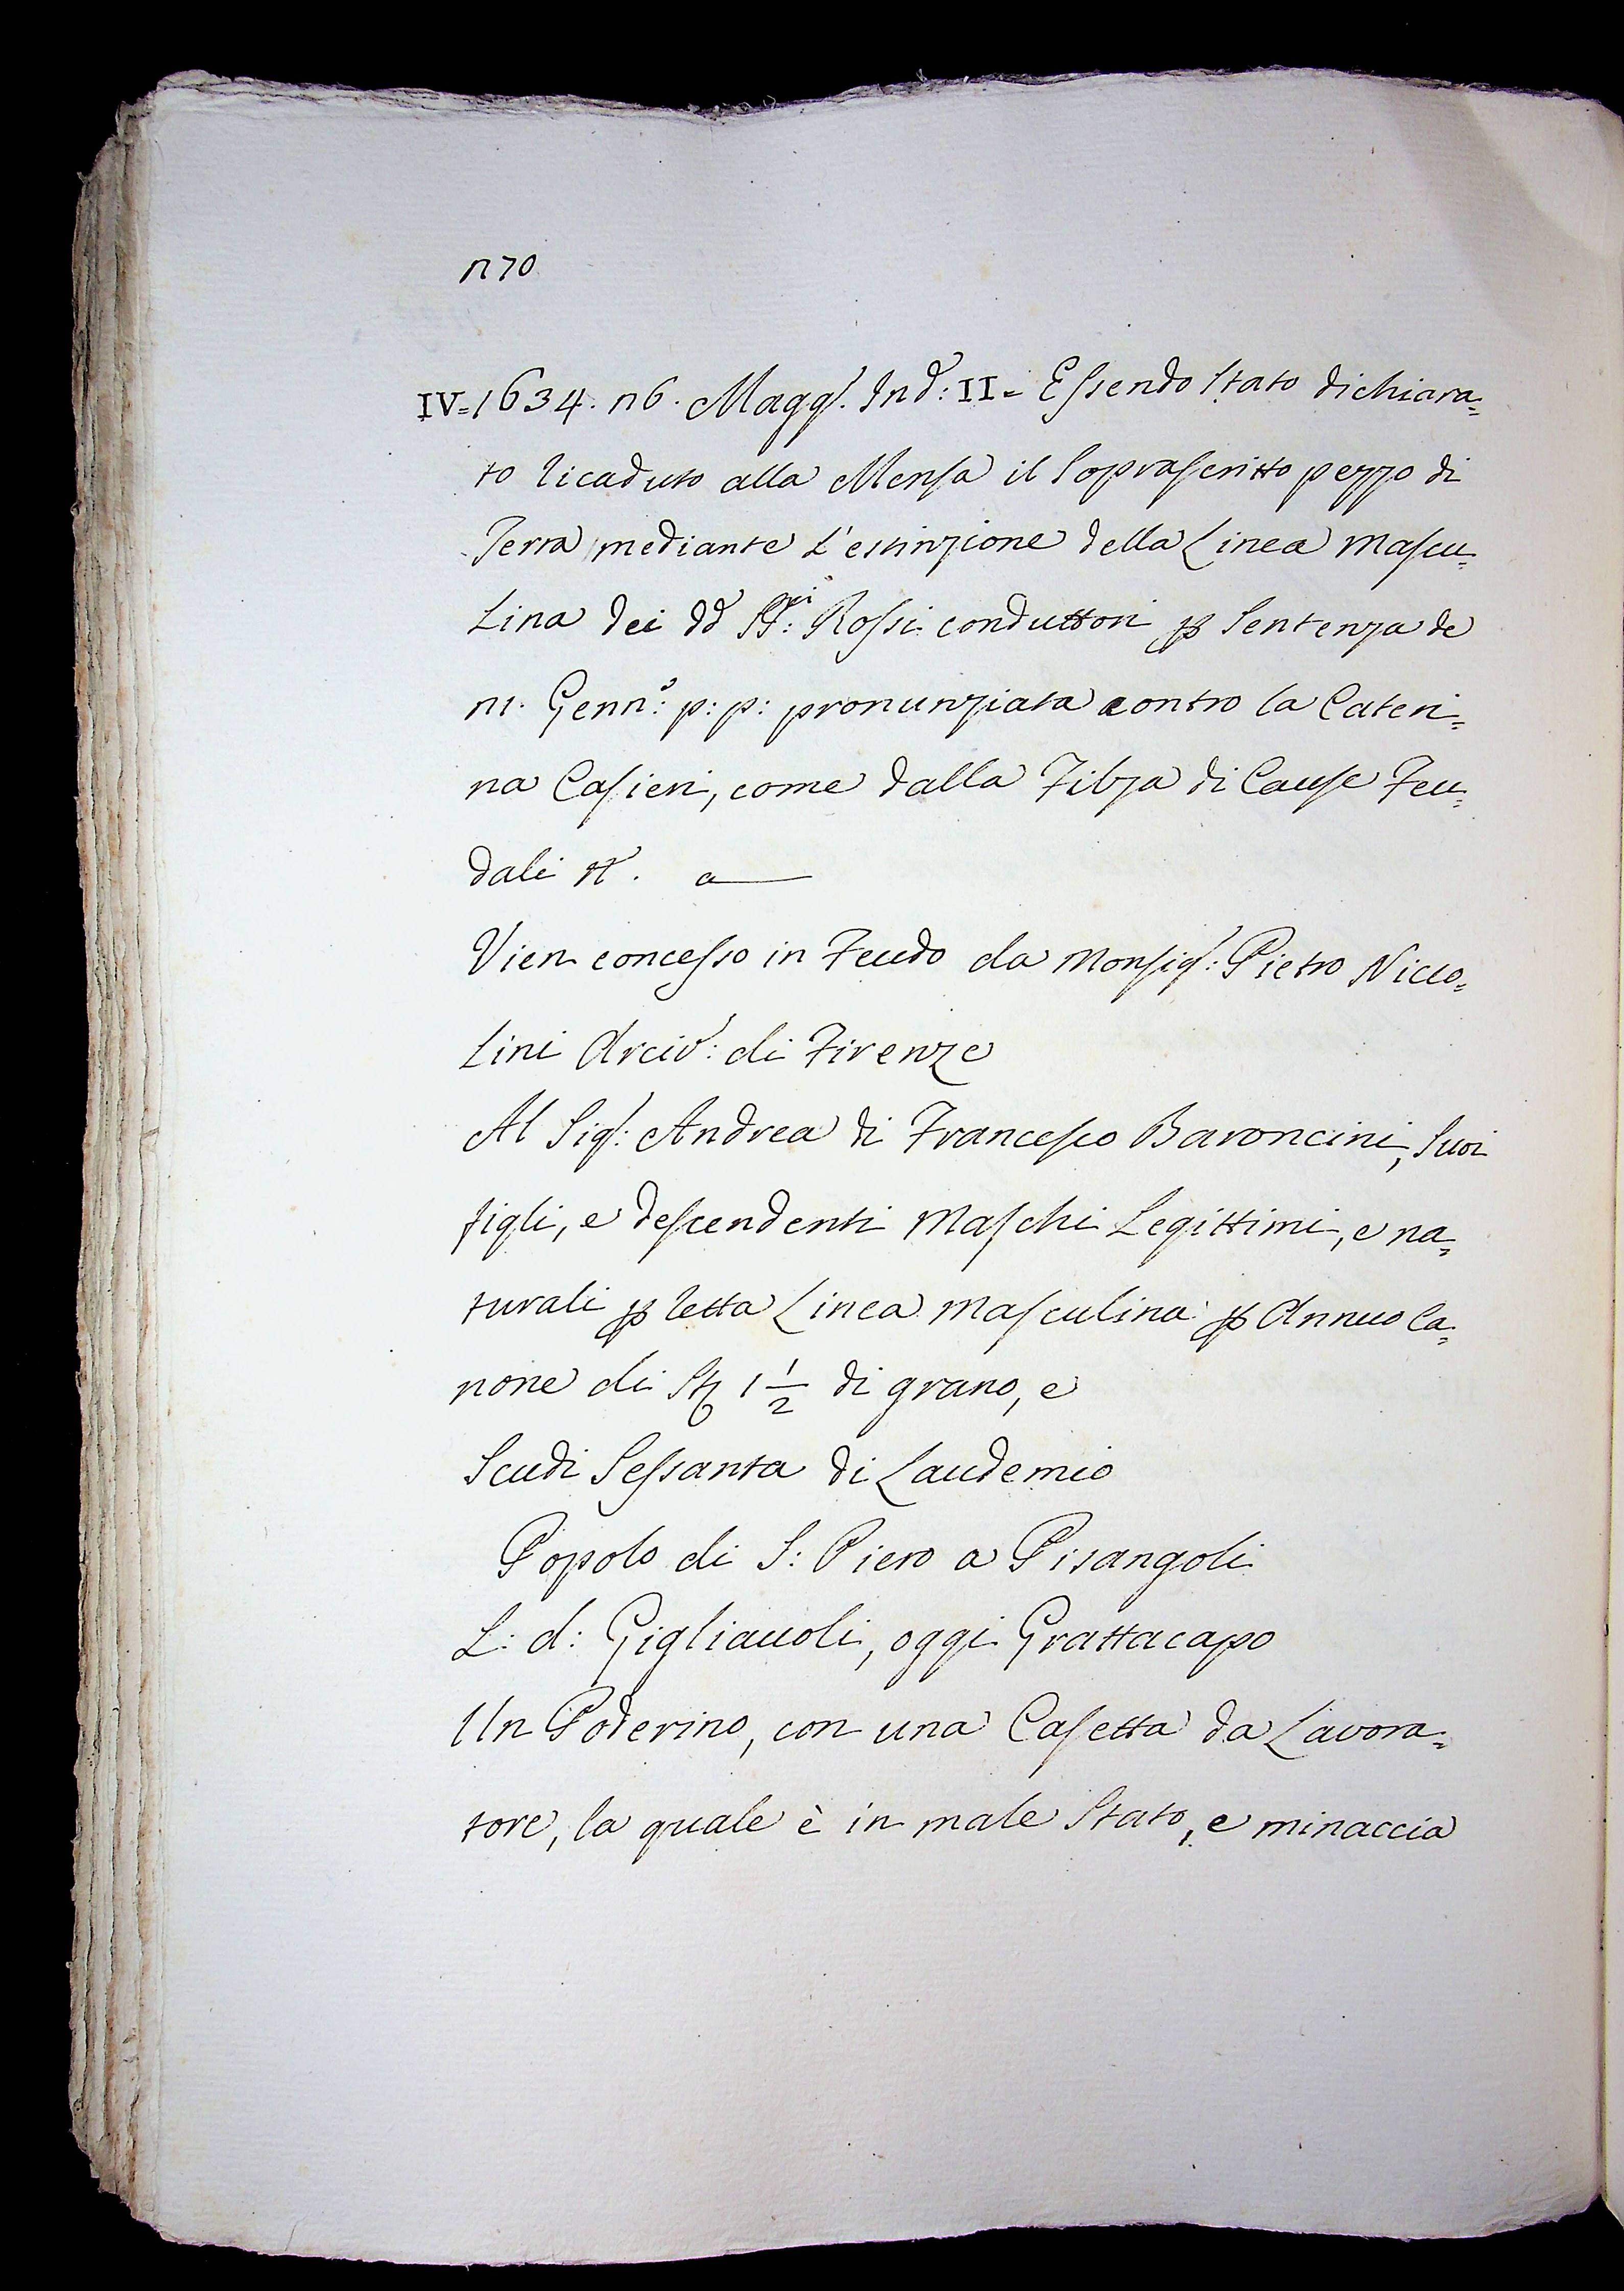 n70
IV=1634. n6. Magg. Ind: II= Essendo Stato dichiara=
to ricaduto alla Mensa il Soprascritto pezzo di
Terra mediante l'estinzione della Linea mascu=
Lina dei dd SS:ri Rossi conduttori p Sentenza de
n1. Genn:o p:p: pronunziata contro la Cateri=
na Casieri, come dalla Filza di Cause Feu=
dali N. a
Vien concesso in Feudo da Monsig: Pietro Nicco=
Lini Arciv: di Firenze
Al Sig: Andrea di Francesco Baroncini, Suoi
figli, e descendenti Maschi Legittimi, e na=
turali p retta Linea Masculina p Annuo Ca=
none di St 1 1/2 di grano, e
Scudi Sessanta di Laudemio
Popolo di S: Piero a Pisangoli
L: d: Gigliauoli, oggi Grattacapo
Un Poderino, con una Casetta da Lavora=
tore, la quale è in male Stato, e minaccia